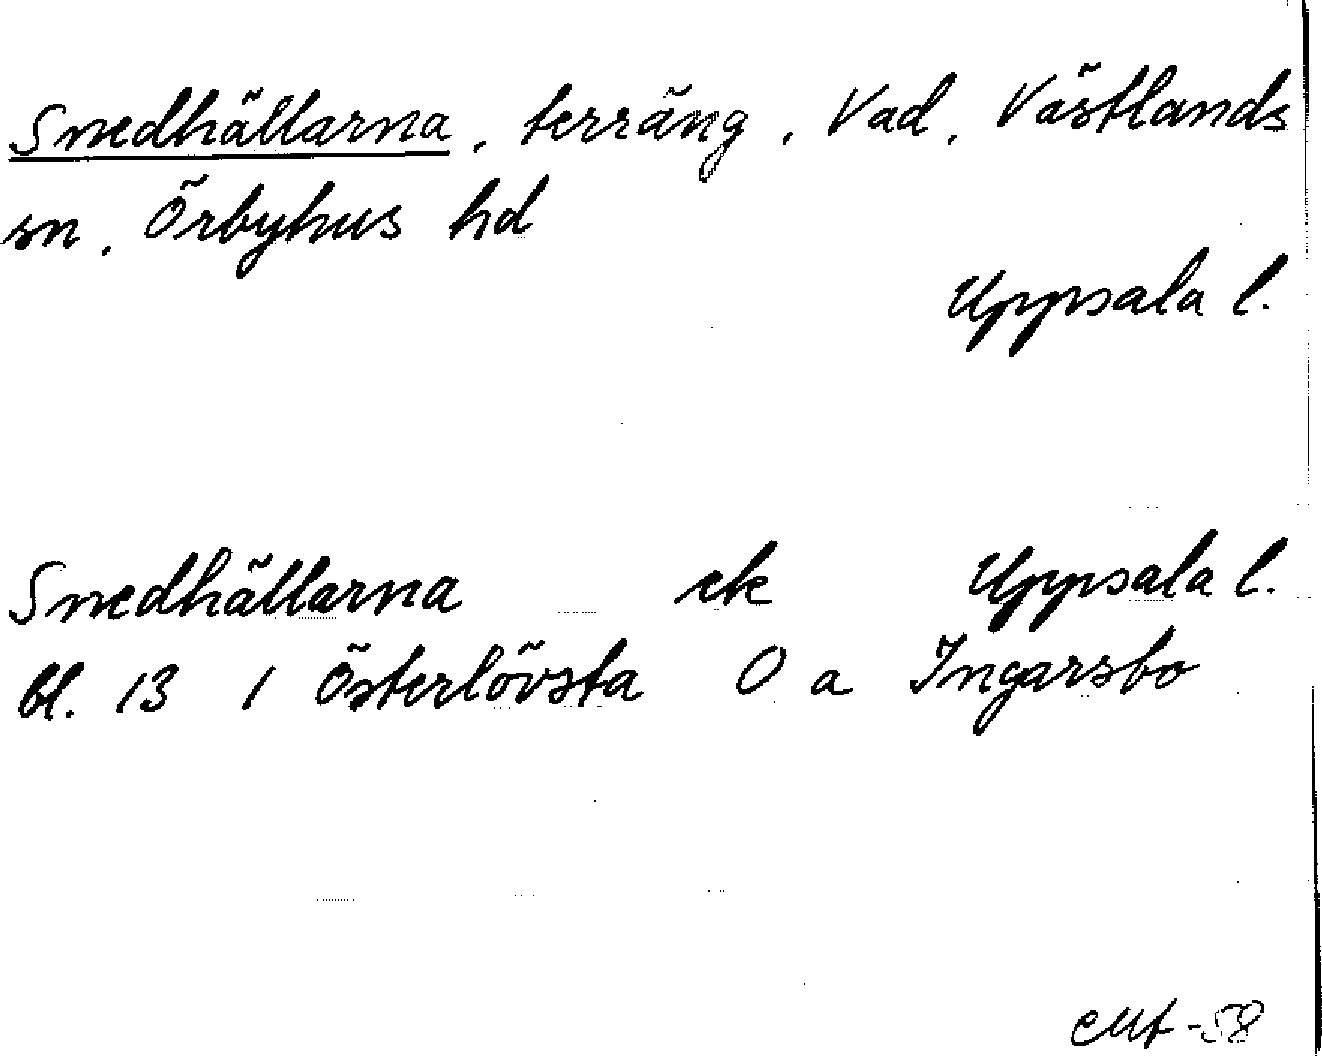 Snedhällarna, terräng, Vad, Västlands
sn, Örbyhus hd
Uppsala l.
Snedhällarna ek Uppsala l.
bl. 13 1 Österlövsta O a Ingarsbo
-58